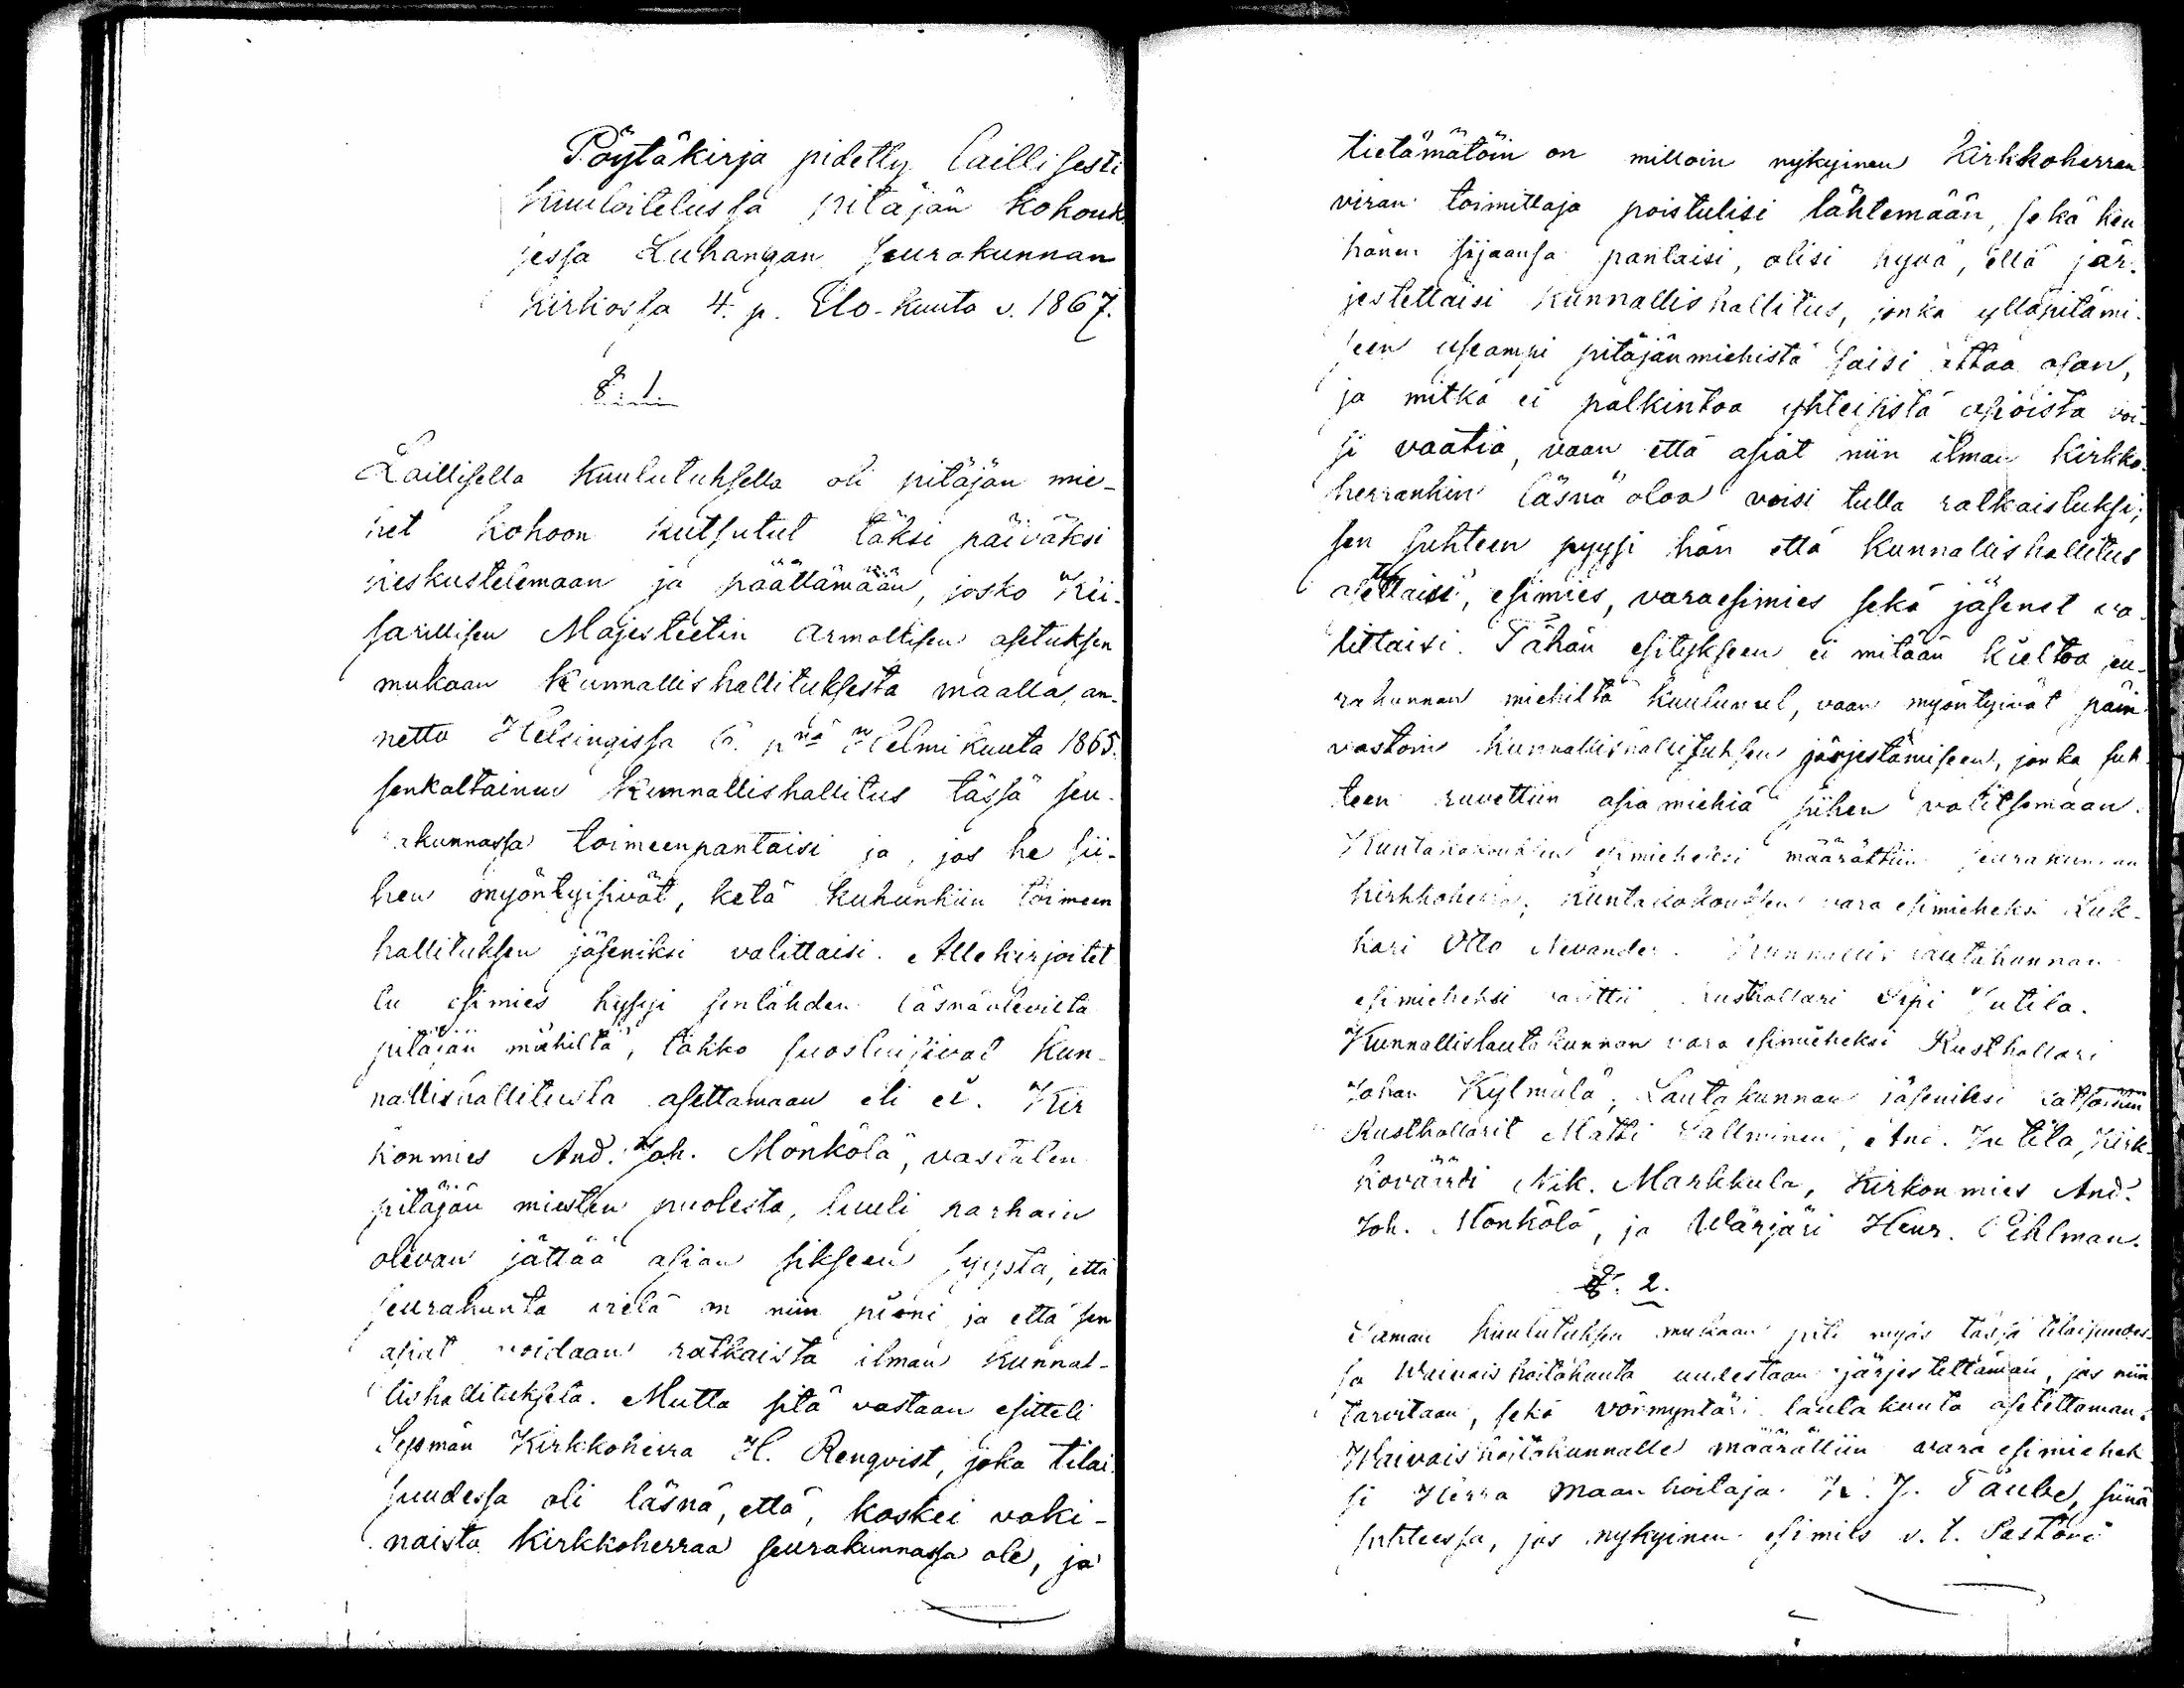 Pöytäkirja pidetty laillisesti
kuuloitelussa pitäjän kokouk
sessa Luhangan seurakunnan
kirkossa 4. p. Elo-kuuta v. 1867.
§ 1.
Laillisella kuulutuksella oli pitäjän mie-
het kokoon kutsutut täksi päiväksi
keskustelemaan ja päättämään, josko Kei-
sarillisen Majesteetin armollisen asetuksen
mukaan Kunnallishallituksesta maalla, an-
nettu Helsingissä 6. pnä Helmikuuta 1865.
senkaltainen Kunnallishallitus tässä seu-
rakunnassa toimeenpantaisi ja, jos he sii-
hen myöntyisivät, ketä kuhunkiin toimeen
hallituksen jäseniksi valittaisi. Allekirjoitet
tu esimies kysyi sentähden läsnäolevilta
pitäjän miehiltä, tahko suostuisivat Kun-
nallishallitusta asettamaan eli ei. Kir
konmies And. Joh. Mönkölä, vastaten
pitäjän miesten puolesta, luuli parhain
olevan jättää asian sikseen syystä, että
seurakunta vielä on niin pieni ja että sen
asiat voidaan ratkaista ilman kunnal-
lishallitukseta. Mutta sitä vastaan esitteli
Sysmän Kirkkoherra H. Renqvist, joka tilai
suudessa oli läsnä, että, koskei vaki-
naista Kirkkoherraa seurakunnassa ole, ja
tietämätöin on milloin nykyinen Kirkkoherran
viran toimittaja poistulisi lähtemään, sekä ken
hänen sijaansa pantaisi, olisi hyvä, että jär-
jestettaisi kunnallishallitus, jonka ylläpitämi-
seen useampi pitäjänmiehistä saisi ottaa osan,
ja mitkä ei palkintoa yhteisistä asioista voi-
si vaatia, vaan että asiat niin ilman Kirkko-
herrankin läsnä oloa voisi tulla ratkaistuksi;
sen suhteen pyysi hän että kunnallishallitus
asettaisi, esimies, varaesimies sekä jäsenet va-
littaisi. Tähän esitykseen ei mitään kieltoa seu-
rakunnan miehiltä kuulunut, vaan myöntyivät päin
vastoin kunnallishallituksen järjestämiseen, jonka suh
teen ruvettiin asiamiehiä siihen valitsemaan.
Kuntakokouksen esimieheksi määrättiin seurakunnan
kirkkoherra; kuntakokouksen vara esimieheksi Luk-
kari Otto Nevander. Kunnallis lautakunnan
esimieheksi valittii Rusthollari Sipi Jutila.
Kunnallislautakunnan vara esimieheksi Rusthollari
Johan Kylmälä; Lautakunnan jäseniksi katsottiin
Rusthollarit Matti Sallminen, And. Jutila, Kirk-
koväärti Nik. Markkula, Kirkonmies And.
Joh. Mönkölä, ja Wärjäri Henr. Pihlman.
§. 2.
Saman kuulutuksen mukaan piti myös tässä tilaisuudes-
sa Waivaishoitokunta uudestaan järjestettämän, jos niin
tarvitaan, sekä vörmyntäri lautakunta asetettaman.
Waivaishoitokunnalle määrättiin vara esimiehek
si Herra maanhoitaja K. J. Täube, siinä
suhteessa, jos nykyinen esimies v. t. Pastori